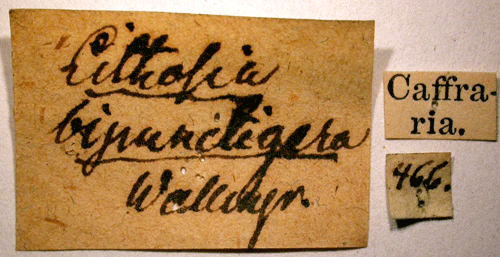 Lithosia
bipunctigera
Wallengr.
Caffra-
ria.
466.